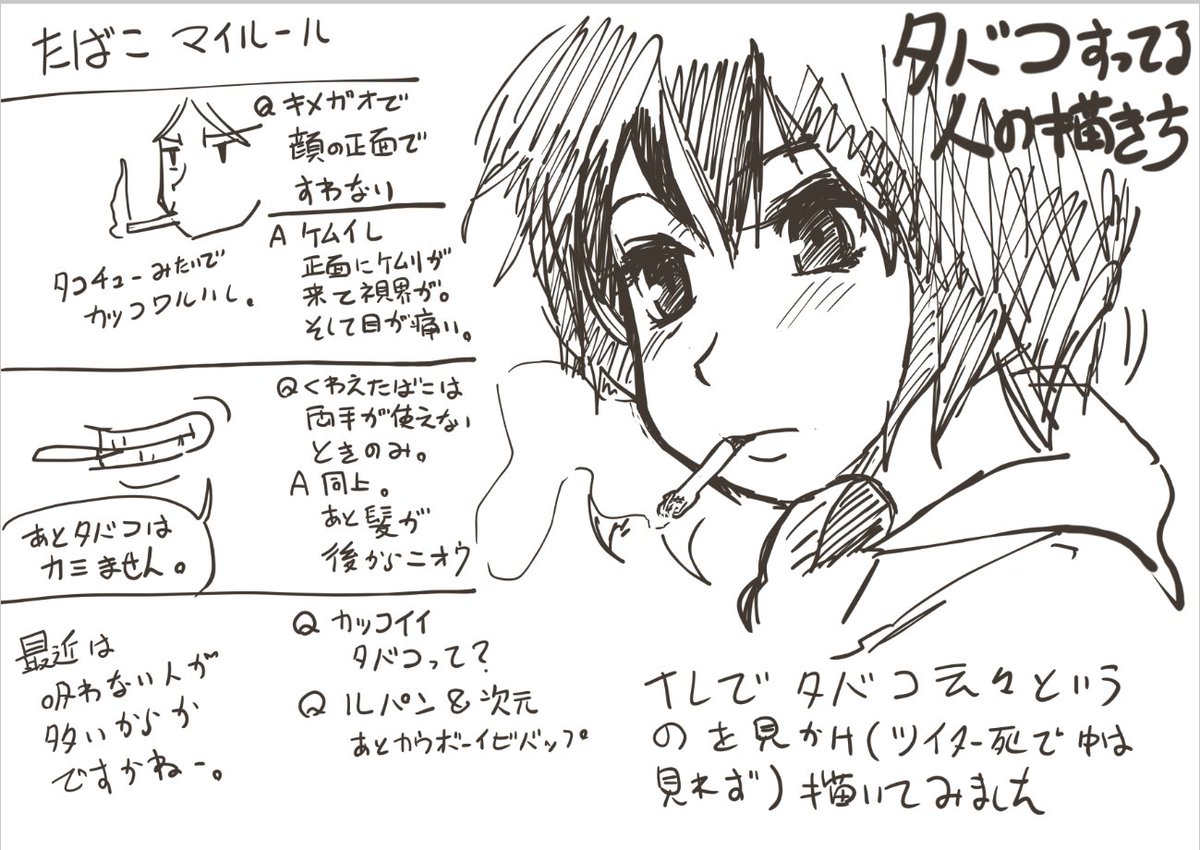 タバコすってる
人の描きち
たばこ マイルール
Q キメガオで
顔の正面で
すわない
A ケムイし
正面にケムリが
来て視界が。
そして目が痛い。
タコチューみたいで
カッコワルいし。
Q くわえたばこは
両手が使えない
ときのみ。
A 同上。
あと髪が
後からニオウ
あとタバコは
カミません。
Q カッコイイ
タバコって?
Q ルパン&次元
あとカウボーイビバップ
最近は
吸わない人が
多いからか
ですかねー。
TLでタバコ云々という
のを見かけ(ツイター死で中は
見れず)描いてみました